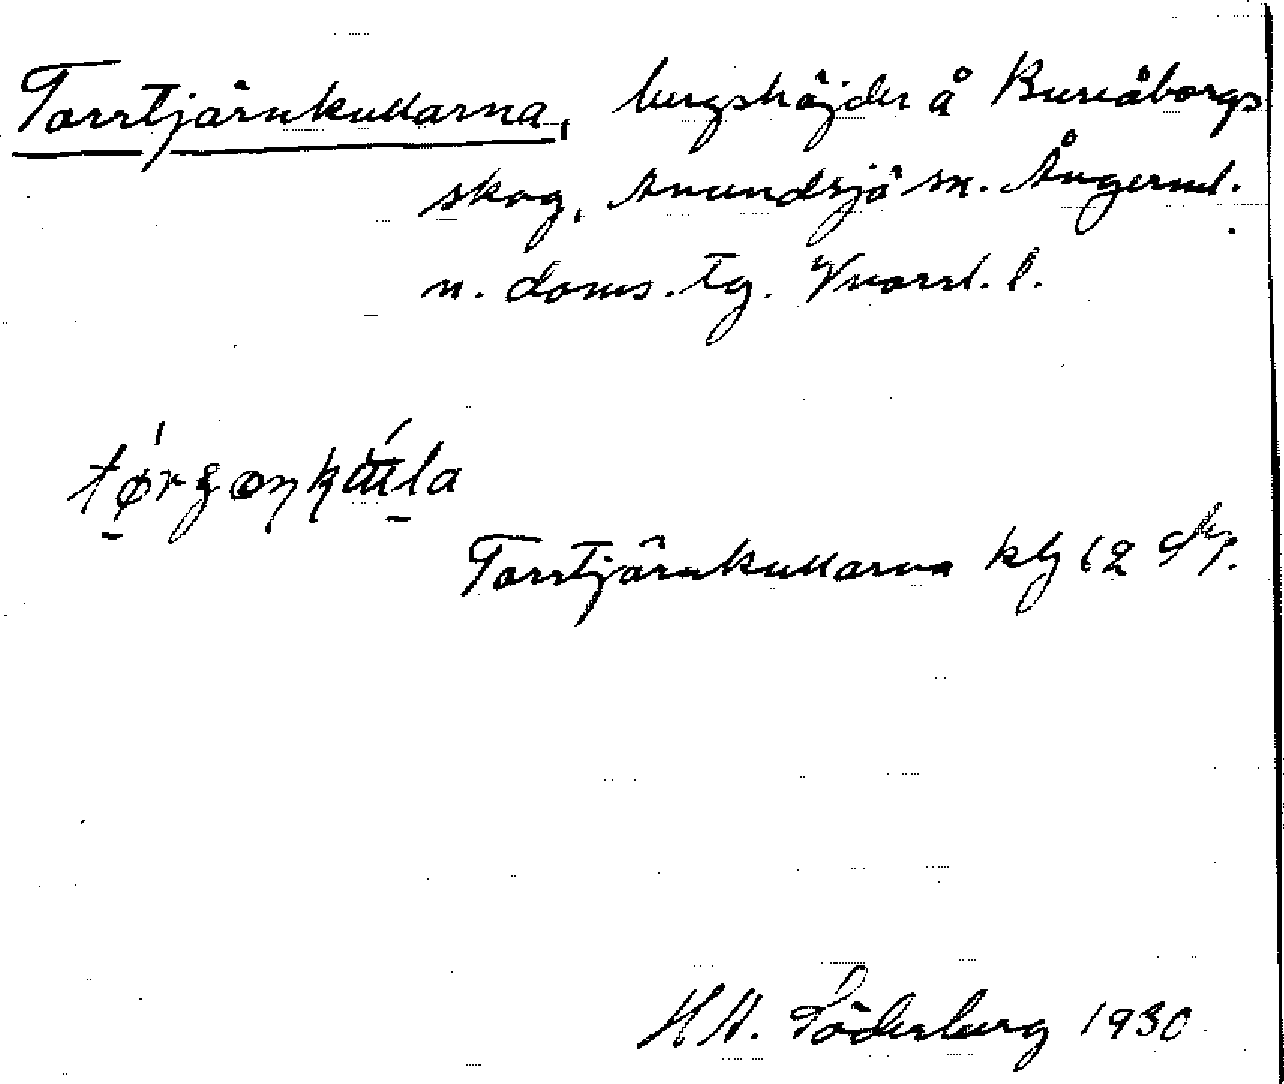 Torrtjärnkullarna, bergshöjder å Bureåborgs
skog, Anundsjö sn. Ångerml.
n. doms. tg. Vnorrl. l.
Torrtjärnkullarna kbl 12
H A. Söderberg 1930